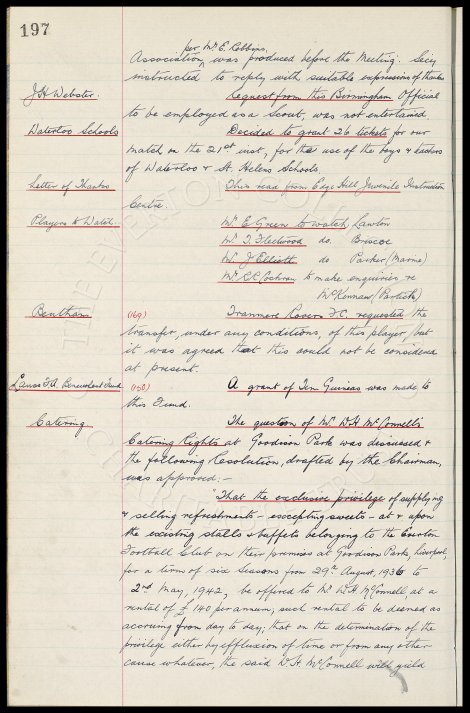 197
per Mr E. Robbins,
Association, was produced before the Meeting. Secy
instructed to reply with suitable expressions of thanks
J H Webster. Request from this Birmingham Official
to be employed as a Scout, was not entertained
Waterloo Schools Decided to grant 26 tickets for our
match on the 21st inst, for the use of the boys & teachers
of Waterloo & St. Helens Schools.
Letter of Thanks This read from Page Hill Juvenile Instruction
Centre.
Players to Watch. Mr E Green to watch Lawton
Mr T. Fleetwood do. Briscoe
Mr J Elliott do Parker (Marine)
Mr C.E. Cochran to make enquiries re
(Partick)
Bentham (169) Tranmere Rovers F.C. requested the
transfer, under any conditions, of this player, but
it was agreed that this could not be considered
at present.
Lancs F.A. Benevolent Fund (150) A grant of Ten Guineas was made to
this Fund.
Catering The question of Mr W.H. McConnell's
Catering Rights at Goodison Park was discussed &
the following Resolution, drafted by the Chairman,
was approved:-
"That the exclusive privilege of supplying
& selling refreshments - excepting sweets - at & upon
the existing stalls & buffets belonging to the Everton
Football Club on their premises at Goodison Park, Liverpool,
for a term of six Seasons from 29th August, 1936 to
2nd May, 1942, be offered to Mr W.H. McConnell at a
rental of £140 per annum, such rental to be deemed as
accruing from day to day; that on the determination of the
privilege either by effluxion of time or from any other
cause whatever, the said W.H. McConnell will yield